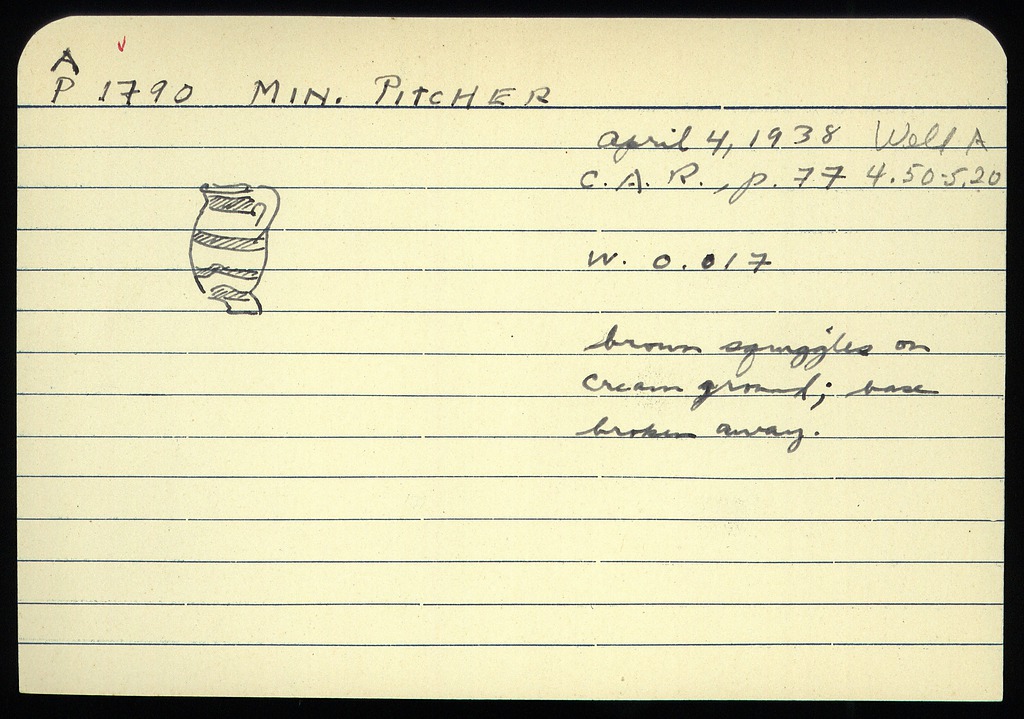 A
P 1790 MIN. PITCHER
April 4, 1938 Well A
C.A.R., p. 77 4.50-5.20
W. 0.017
brown squiggles on
cream ground; base
broken away.